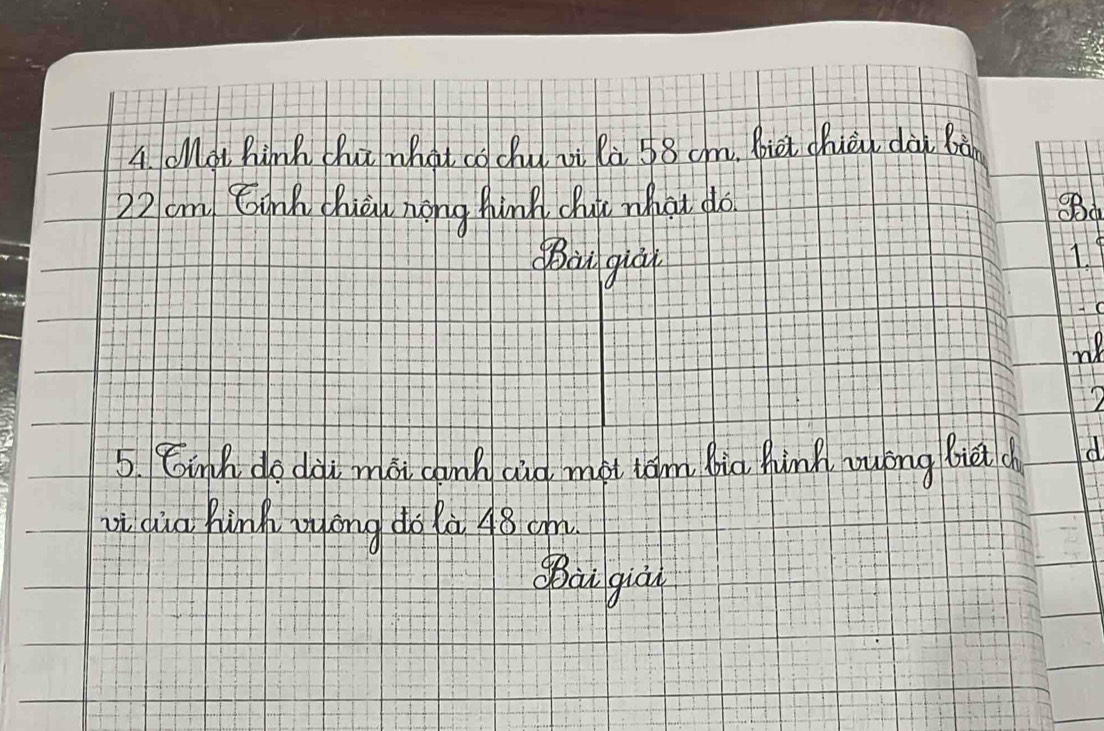 4. Một hình chữ nhật có chu vi là 58 cm, biết chiều dài bằn
22 cm. Tính chiều rộng hình chữ nhật đó.
Bài giải
5. Tính độ dài mỗi cạnh của một tấm bìa hình vuông biết ch
vi của hình vuông đó là 48 cm.
Bài giải
Bà
1.
nh
2
d